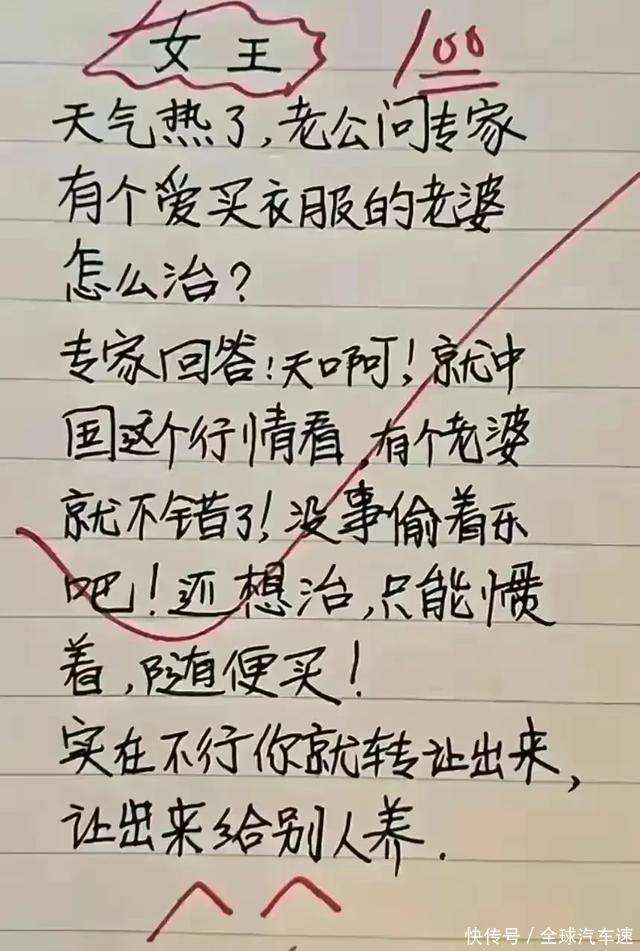 女王 100
天气热了,老公问专家
有个爱买衣服的老婆
怎么治?
专家回答!天啊!就中
国这个行情看,有个老婆
就不错了!没事偷着乐
吧!还想治,只能惯
着,随便买!
实在不行你就转让出来,
让出来给别人养.
快传号/全球汽车速